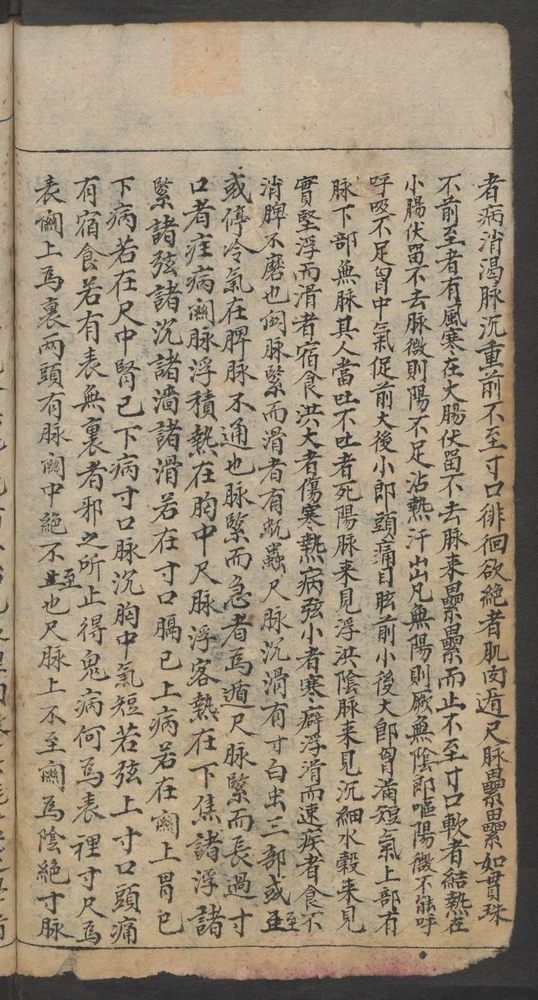 者病消渴脉沉重前不至寸口徘徊欲絶者肌肉遁尺脉纍纍如貫珠
不前至者有風寒在大腸伏留不去脉来纍纍而止不至寸口軟者結熱在
小腸伏留不去脉微則陽不足沾熱汗出凡無陽則厥無陰即嘔陽微不能呼
呼吸不足胷中氣促前大後小即頭痛目眩前小後大即胷滿短氣上部有
脉下部無脉其人當吐不吐者死陽脉来見浮洪陰脉来見沉細水榖来見
實堅浮而滑者宿食洪大者傷寒熱病弦小者寒癖浮滑而速疾者食不
消脾不磨也関脉緊而滑者有蚘蟲尺脉沉滑有寸白虫三部或至
或停冷氣在脾脉不通也脉緊而急者為遁尺脉緊而長過寸
口者疰病関脉浮積熱在胸中尺脉浮客熱在下焦諸浮諸
緊諸弦諸沉諸濇諸滑若在寸口膈已上病若在関上胃已
下病若在尺中腎已下病寸口脉沉胸中氣短若弦上寸口頭痛
有宿食若有表無裏者邪之所止得鬼病何為表裡寸尺為
表関上為裏兩頭有脉関中絶不至也尺脉上不至関為陰絶寸脉